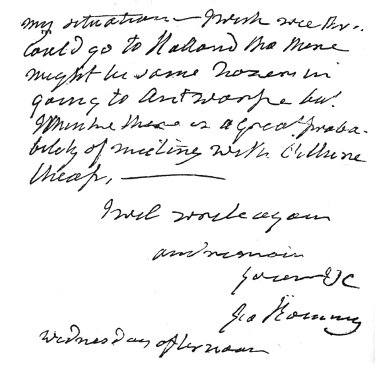 my situation – I wish wee
could go to Holland tho there
might be some hazerd in
going to Antwarpe but
I think there is a Great Proba-
bility of meeting with
Cheap, ———
I will write again
and remain
Yours &C
Geo Romney
Wednesday afternoon